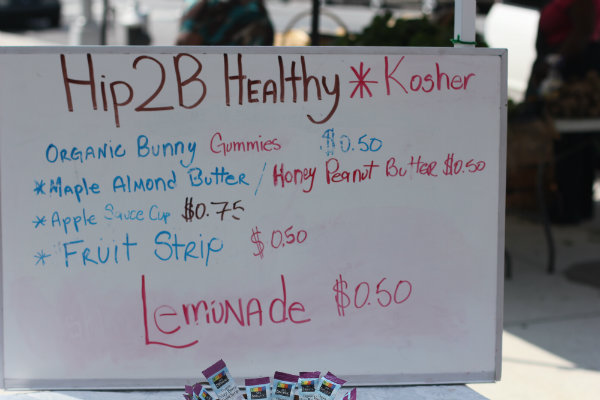 Hip2B Healthy * Kosher
Organic Bunny Gummies $0.50
* Maple Almond Butter / Honey Peanut Butter $0.50
* Apple Sauce Cup $0.75
* Fruit Strip $0.50
Lemonade $0.50